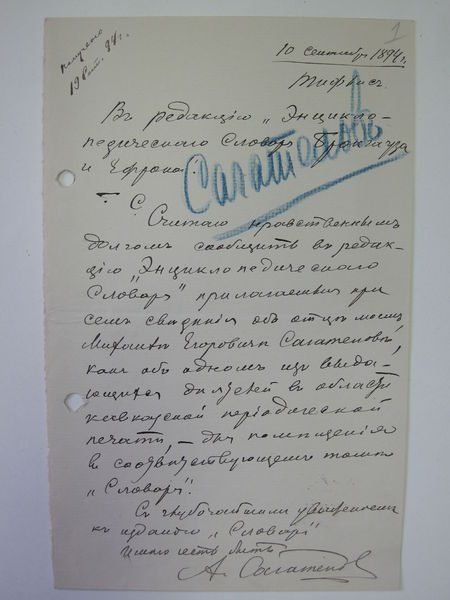 1
получено
19 Сент. 94 г.
10 сентября 1894 г.
Тифлисъ.
Въ редакцію „Энцикло-
педическаго Словаря Брокгауза
и Ефрона".
Сагателовъ
Считаю нравственнымъ
долгомъ сообщить въ редак-
цію „Энциклопедическаго
Словаря" прилагаемыя при
семъ свѣдѣнія объ отцѣ моемъ,
Михаилѣ Егоровичѣ Сагателовѣ,
какъ объ одномъ изъ выда-
ющихся дѣятелей въ области
кавказской періодической
печати, — для помѣщенія
въ соотвѣтствующемъ томѣ
„Словаря".
Съ глубочайшимъ уваженіемъ
къ изданію „Словаря"
имѣю честь быть
А. Сагателов